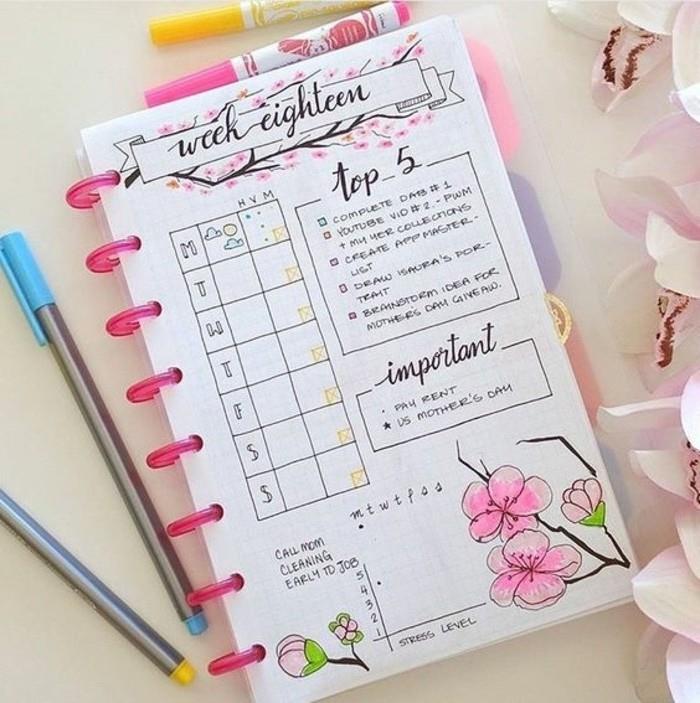 week eighteen
top 5
COMPLETE DAB #1
YOUTUBE VID #2 - PWM
+ MY YER COLLECTIONS
CREATE APP MASTER-
LIST
DRAW ISAURA'S POR-
TRAIT
BRAINSTORM IDEA FOR
MOTHER'S DAY GIVEAW.
H V M
M
T
W
T
F
S
S
important
PAY RENT
US MOTHER'S DAY
m t w t f s s
CALL MOM
CLEANING
EARLY TO JOB
5
4
3
2
1
STRESS LEVEL